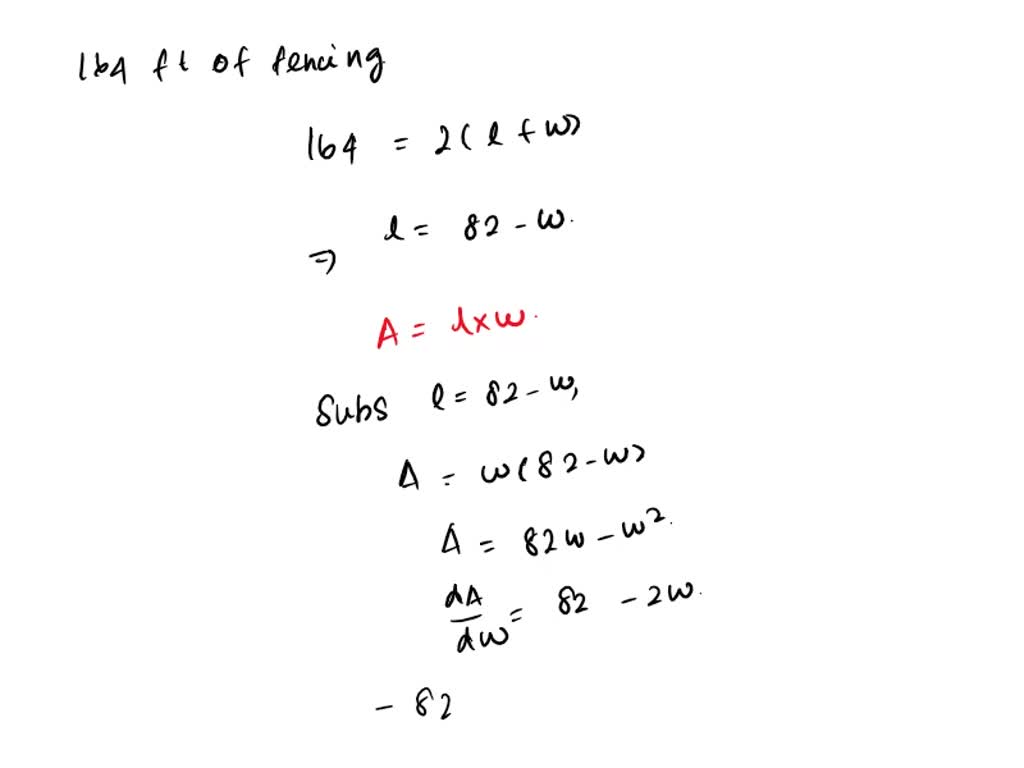 164 ft of fencing
164 = 2(l + w)
l = 82 - w.
⇒
A = l×w.
Subs l = 82 - w,
A = w(82 - w)
A = 82w - w².
dA/dw = 82 - 2w.
- 82